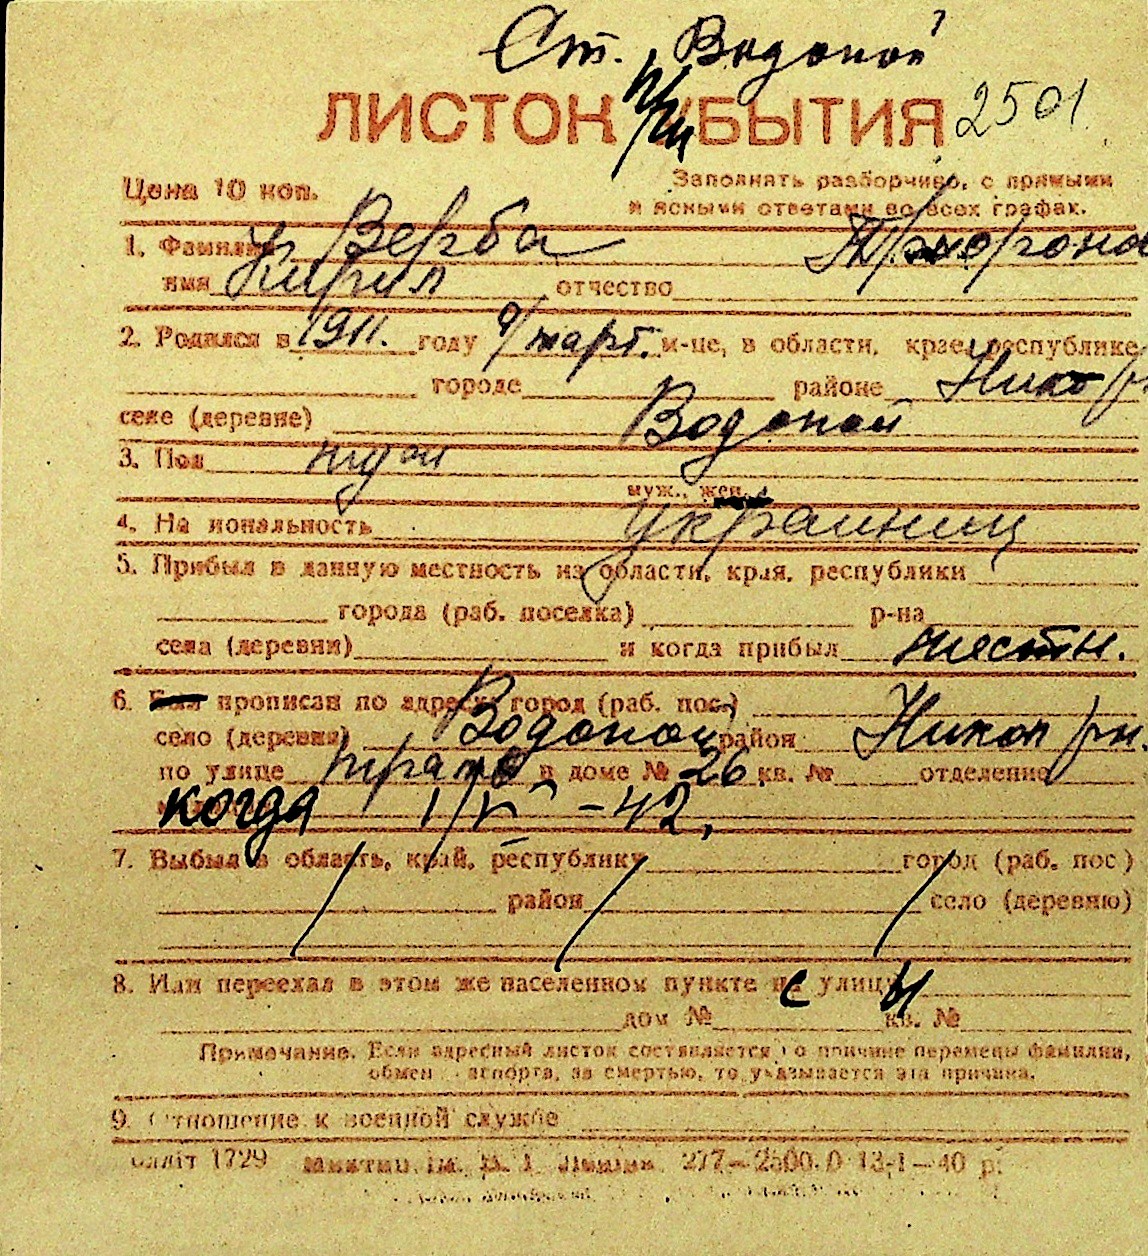 Ст. Водопой
ЛИСТОК ПРИБЫТИЯ 2501
Цена 10 коп.
Заполнять разборчиво, с прямыми
и ясными ответами во всех графах.
1. Фамилия Верба
имя Кирил отчество
2. Родился в 1911. году 9/март. м-це, в области, крае, республике
городе районе Никол
селе (деревне) Водопой
3. Пол муж
муж., жен.
4. На иональность украинец
5. Прибыл в данную местность из области, края, республики
города (раб. поселка) р-на
села (деревни) и когда прибыл местн.
6. прописан по адресу: город (раб. пос.)
село (деревня) Водопой район Никол рн
по улице в доме № 26 кв. № отделение
когда -42,
7. Выбыл в область, край, республику город (раб. пос)
район село (деревню)
8. Или переехал в этом же населенном пункте с улицы
дом № кв. №
Примечание. Если адресный листок составляется о причине перемены фамилии,
обмен аспорта, за смертью, то указывается эта причина.
9. Отношение к военной службе
лліт 1729 277—2500.0 13-1—40 р.